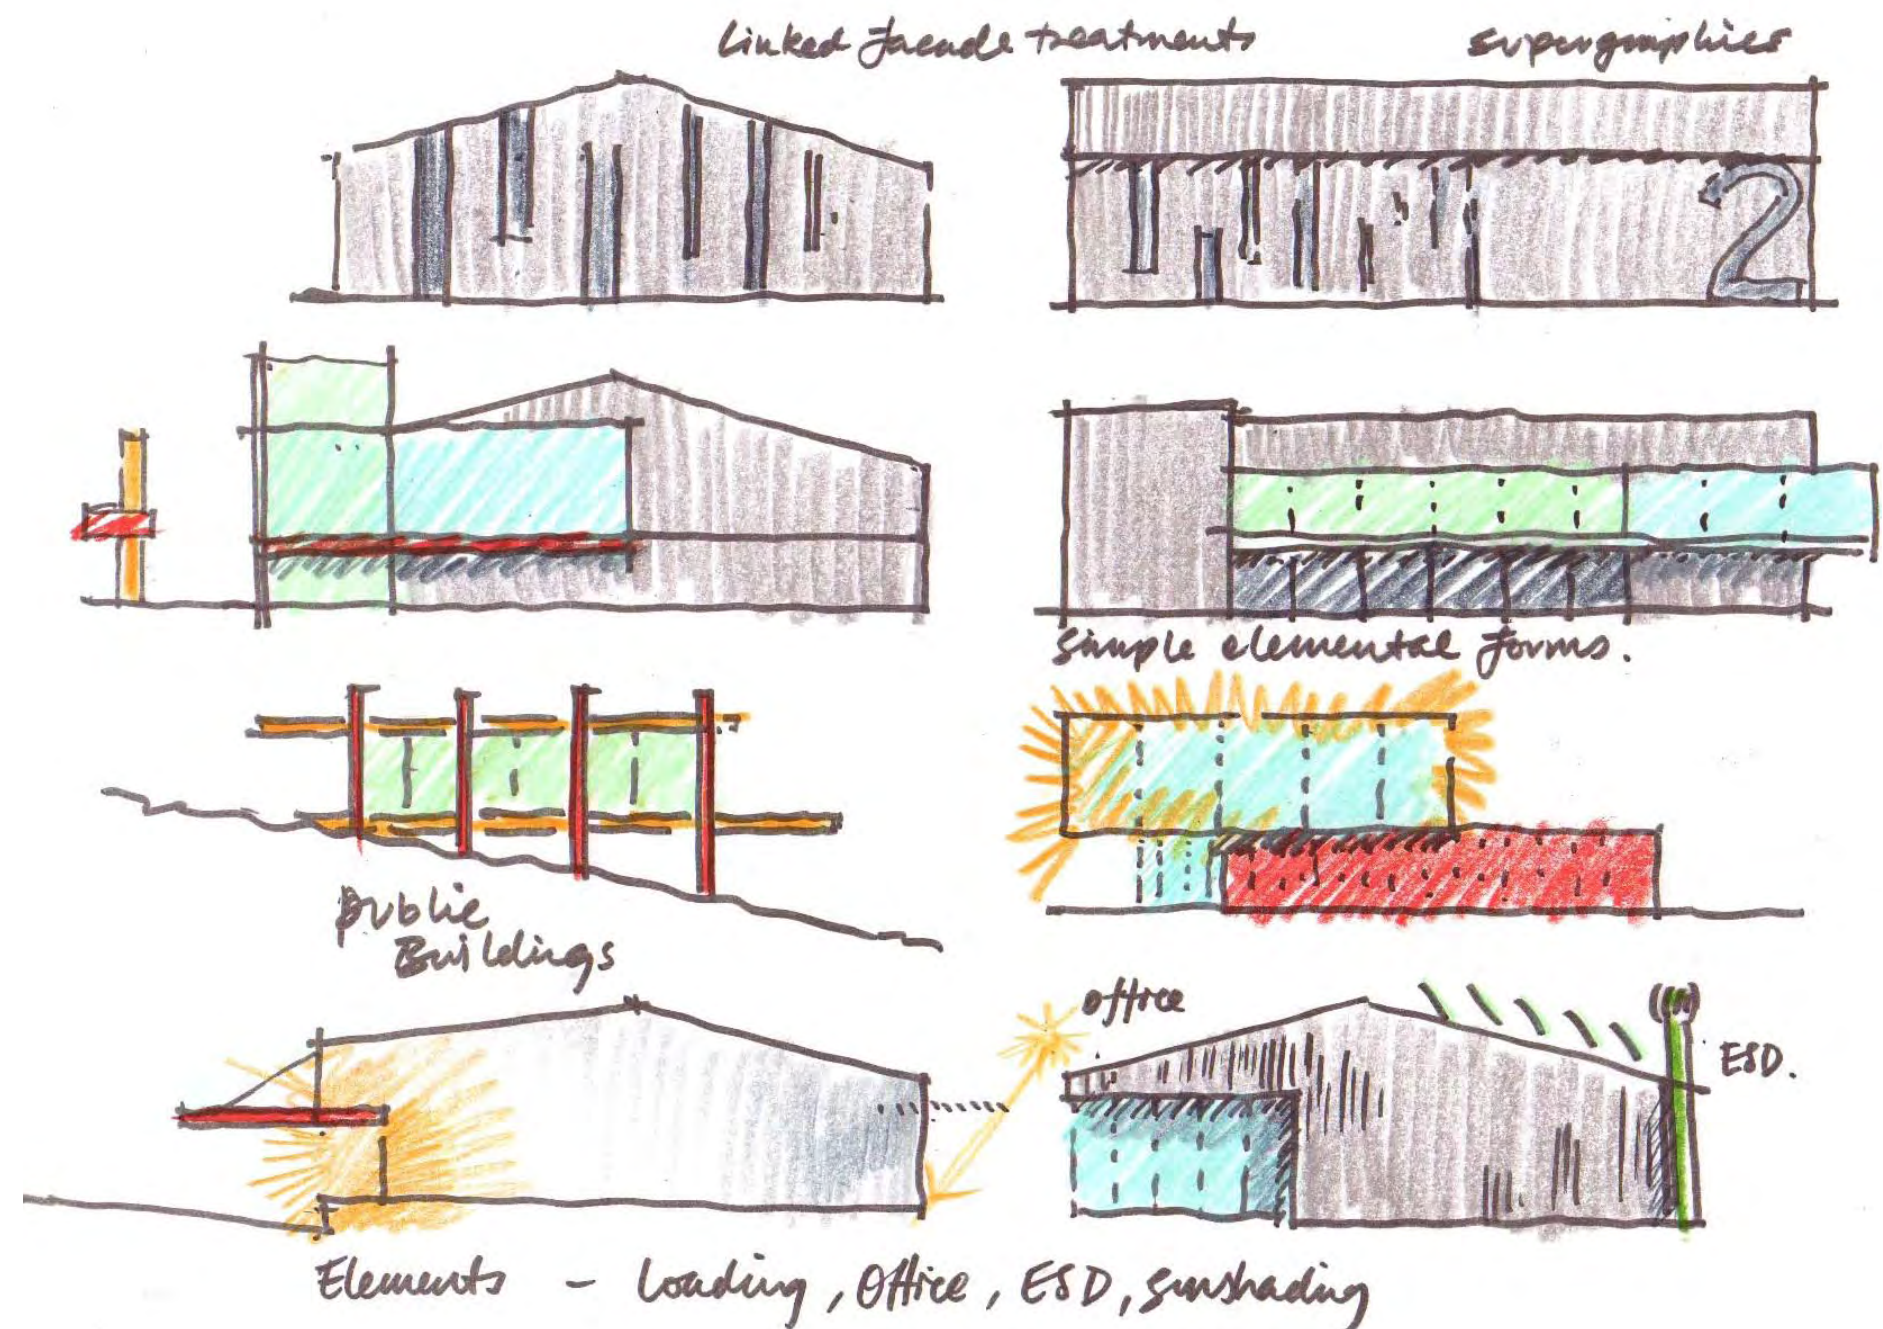 Linked facade treatments
supergraphics
2
simple elemental forms.
public
Buildings
office
ESD.
Elements - Loading, Office, ESD, sunshading